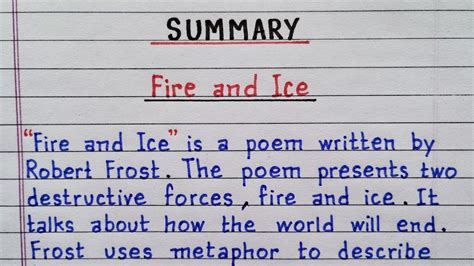 SUMMARY
Fire and Ice
"Fire and Ice" is a poem written by
Robert Frost. The poem presents two
destructive forces, fire and ice. It
talks about how the world will end.
Frost uses metaphor to describe